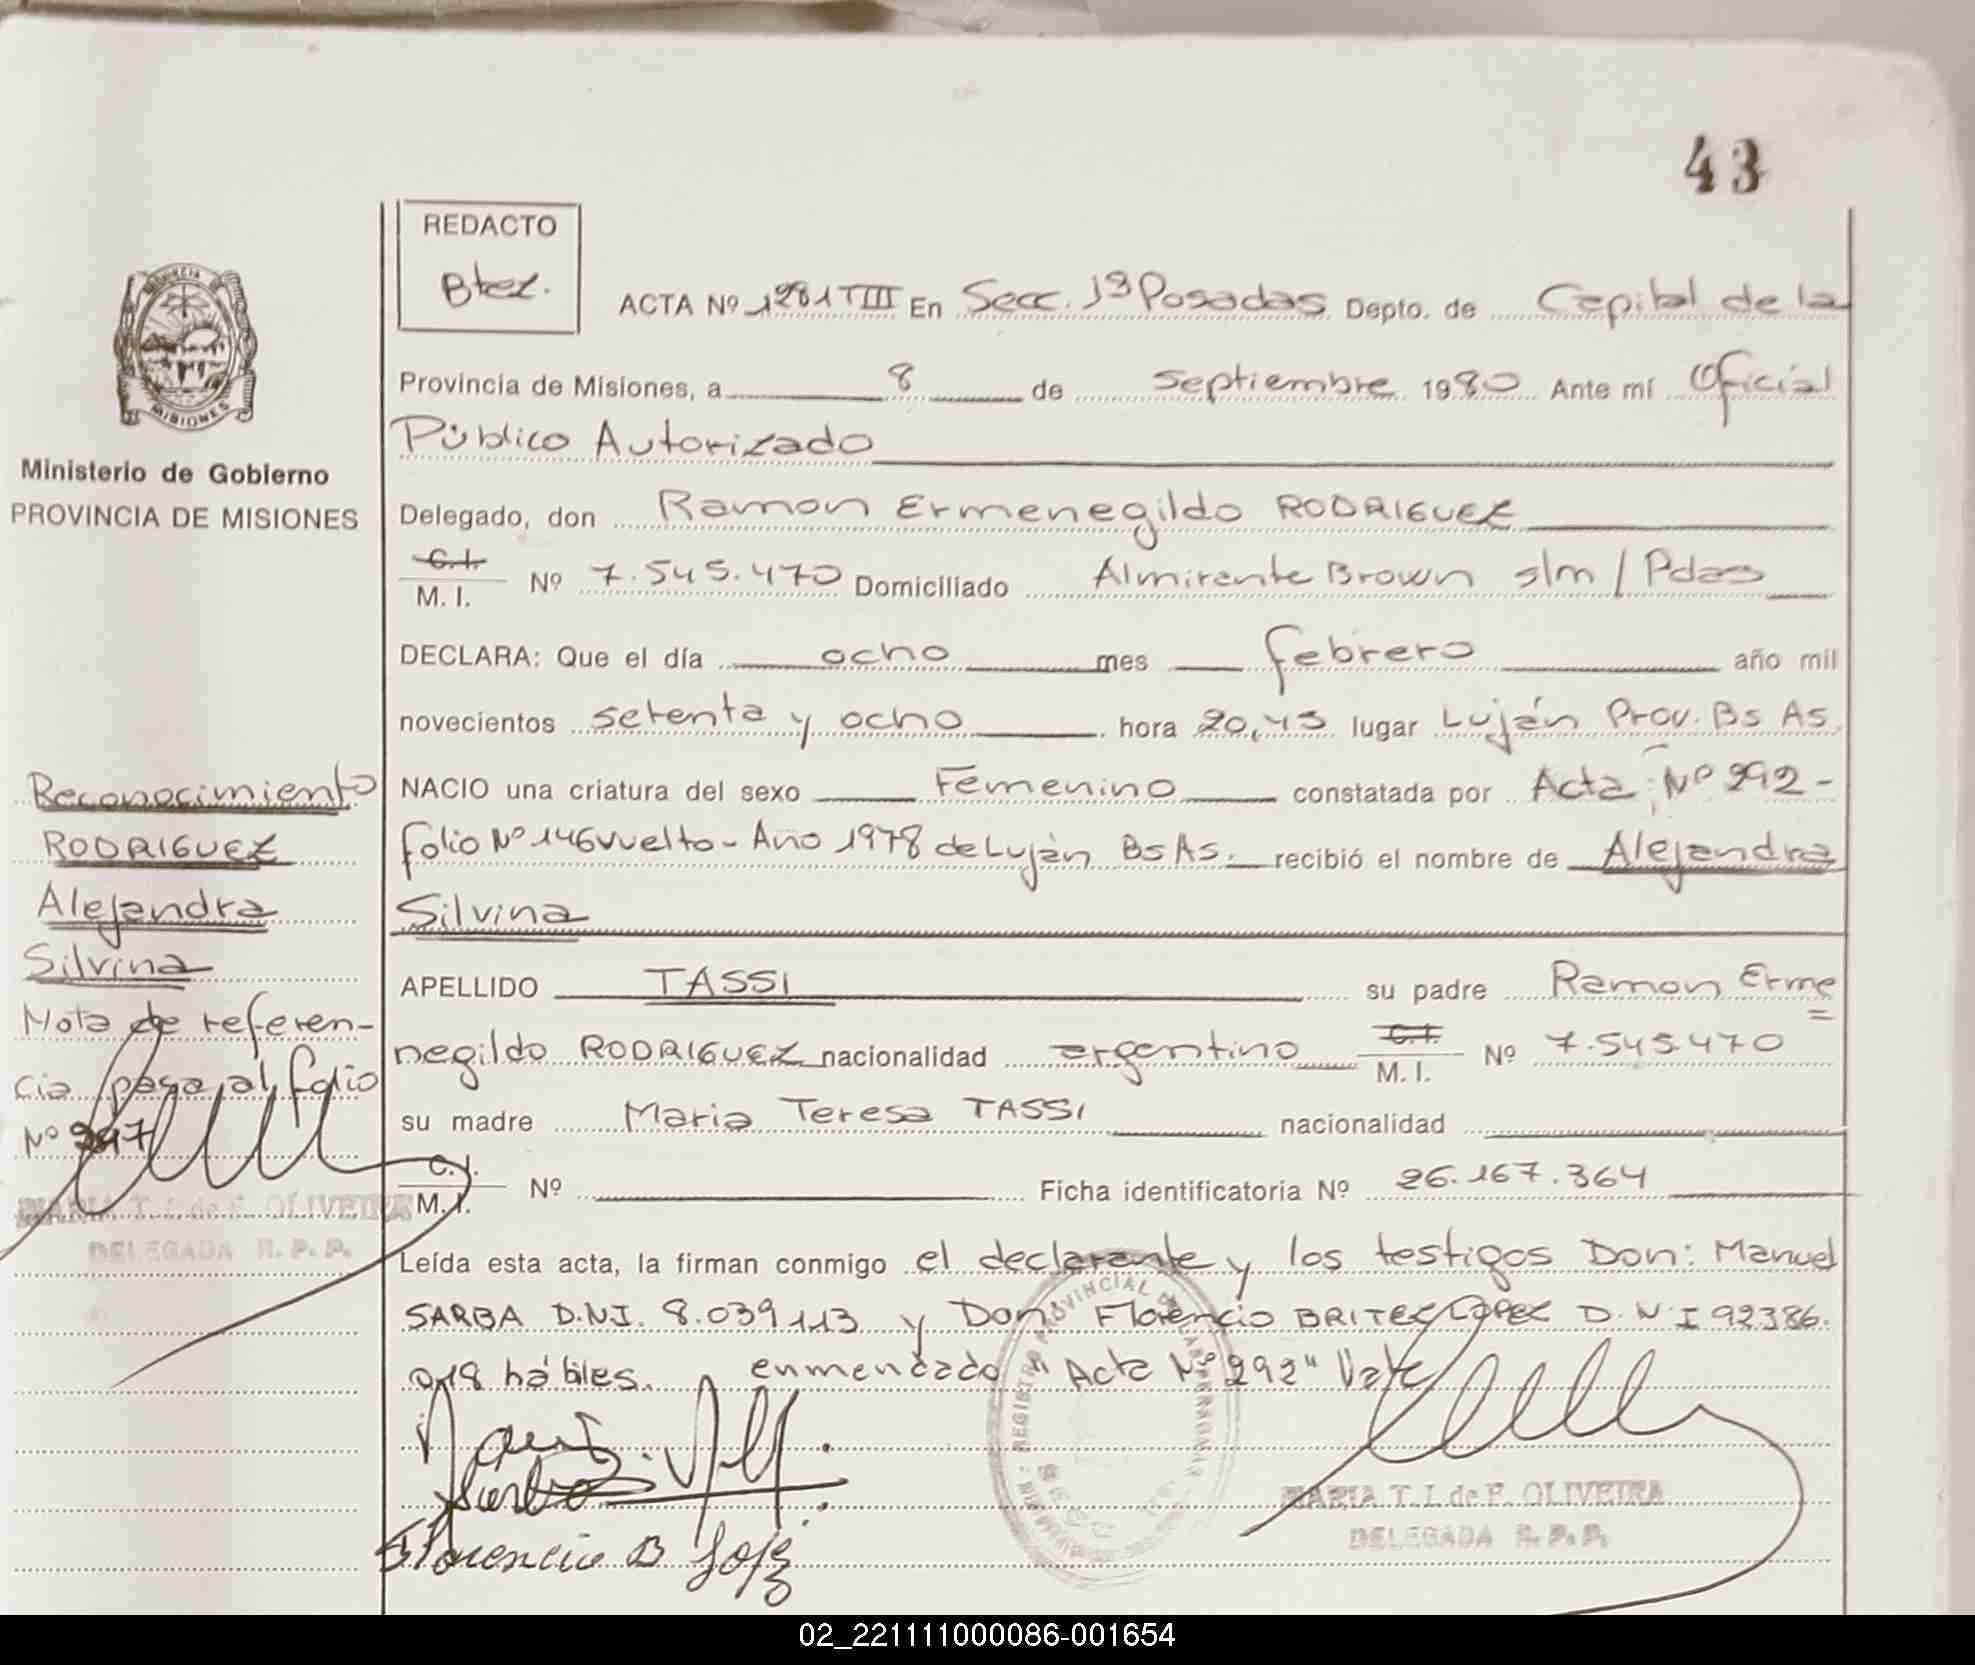 43
REDACTO
Btez.
ACTA Nº 1281 TIII En Secc. 1ª Posadas Depto. de Capital de la
Provincia de Misiones, a 8 de septiembre 1980 Ante mí Oficial
Público Autorizado
Delegado, don Ramon Ermenegildo RODRIGUEZ
C.I.
M. I. Nº 7.545.470 Domiciliado Almirante Brown s/m / Pdas
DECLARA: Que el día ocho mes febrero año mil
novecientos setenta y ocho hora 20,45 lugar Luján Prov. Bs As.
NACIO una criatura del sexo Femenino constatada por Acta Nº 292-
folio Nº 146 vuelto - Año 1978 de Luján Bs As. recibió el nombre de Alejandra
Silvina
APELLIDO TASSI su padre Ramon Erme
negildo RODRIGUEZ nacionalidad argentino C.I. M. I. Nº 7.545.470
su madre Maria Teresa TASSI nacionalidad
C. I.
M. I. Nº Ficha identificatoria Nº 26.167.364
Leída esta acta, la firman conmigo el declarante y los testigos Don: Manuel
SARBA D.N.I. 8.039113 y Don: Florencio BRITEZ LOPEZ D.N.I 92386.
018 hábiles. enmendado "Acta Nº 292" Vale
Florencio B
MARIA T. I. de F. OLIVEIRA
DELEGADA R. P. P.
REGISTRO PROVINCIAL DE LAS PERSONAS
PROVINCIA
MISIONES
Ministerio de Gobierno
PROVINCIA DE MISIONES
Reconocimiento
RODRIGUEZ
Alejandra
Silvina
Nota de referen-
cia pasa al folio
Nº 297
MARIA T. I. de F. OLIVEIRA
DELEGADA R. P. P.
02_221111000086-001654